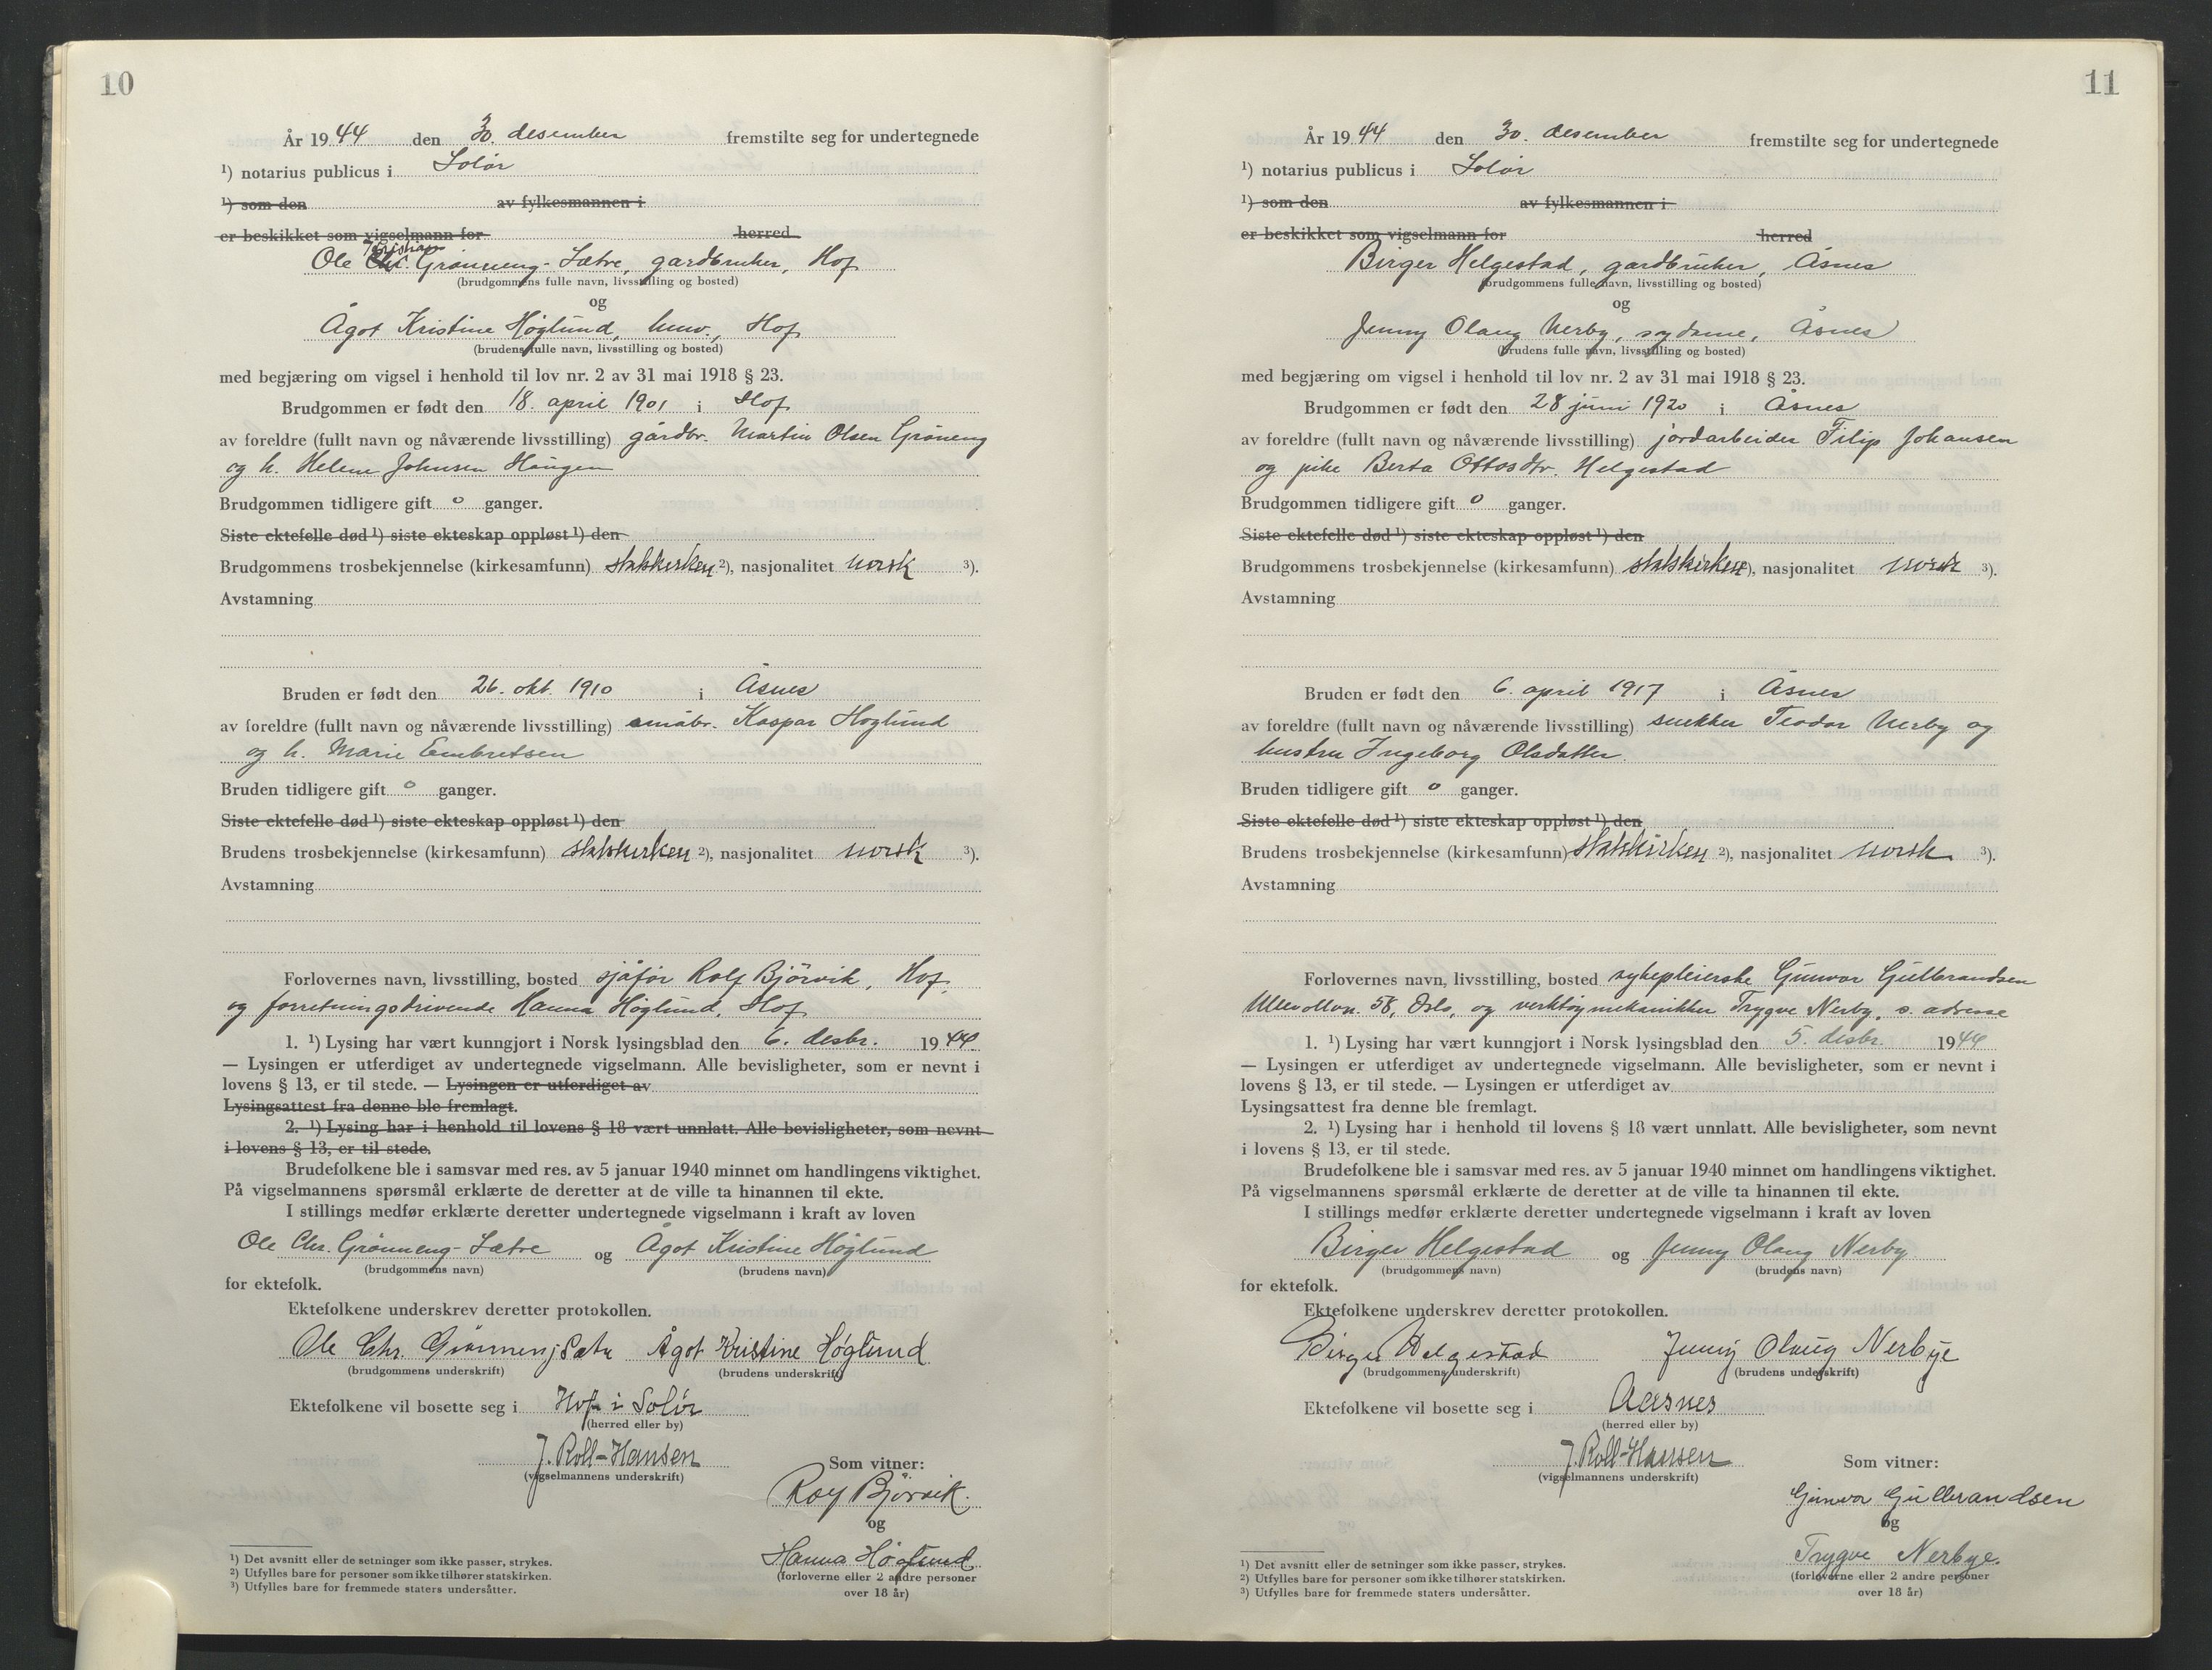 10
År 1944 den 30. desember fremstilte seg for undertegnede
¹) notarius publicus i Solør
¹) som den av fylkesmannen i
er beskikket som vigselmann for herred
Kristian
Ole Chr. Grønneng-Sætre, gardbruker, Hof
(brudgommens fulle navn, livsstilling og bosted)
og
Ågot Kristine Høglund, husv., Hof
(brudens fulle navn, livsstilling og bosted)
med begjæring om vigsel i henhold til lov nr. 2 av 31 mai 1918 § 23.
Brudgommen er født den 18. april 1901 i Hof
av foreldre (fullt navn og nåværende livsstilling) gårdbr. Martin Olsen Gröneng
og h. Helene Johnsen Haugen
Brudgommen tidligere gift 0 ganger.
Siste ektefelle død ¹) siste ekteskap oppløst ¹) den
Brudgommens trosbekjennelse (kirkesamfunn) statskirken ²), nasjonalitet norsk ³).
Avstamning
Bruden er født den 26. okt. 1910 i Åsnes
av foreldre (fullt navn og nåværende livsstilling) småbr. Kaspar Høglund
og h. Marie Embretsen
Bruden tidligere gift 0 ganger.
Siste ektefelle død ¹) siste ekteskap oppløst ¹) den
Brudens trosbekjennelse (kirkesamfunn) statskirken ²), nasjonalitet norsk ³).
Avstamning
Forlovernes navn, livsstilling, bosted sjåfør Rolf Björvik, Hof,
og forretningsdrivende Hanna Høglund, Hof
1. ¹) Lysing har vært kunngjort i Norsk lysingsblad den 6. desbr. 1944.
— Lysingen er utferdiget av undertegnede vigselmann. Alle bevisligheter, som er nevnt i
lovens § 13, er til stede. — Lysingen er utferdiget av
Lysingsattest fra denne ble fremlagt.
2. ¹) Lysing har i henhold til lovens § 18 vært unnlatt. Alle bevisligheter, som nevnt
i lovens § 13, er til stede.
Brudefolkene ble i samsvar med res. av 5 januar 1940 minnet om handlingens viktighet.
På vigselmannens spørsmål erklærte de deretter at de ville ta hinannen til ekte.
I stillings medfør erklærte deretter undertegnede vigselmann i kraft av loven
Ole Chr. Grønneng-Sætre og Ågot Kristine Høglund
(brudgommens navn) (brudens navn)
for ektefolk.
Ektefolkene underskrev deretter protokollen.
Ole Chr. Grönneng Sætre Ågot Kristine Høglund
(brudgommens underskrift) (brudens underskrift)
Ektefolkene vil bosette seg i Hof i Solör
(herred eller by)
J. Roll-Hansen
(vigselmannens underskrift)
Som vitner:
Rolf Björvik.
og
Hanna Høglund
(forloverne eller 2 andre personer
over 18 år)
¹) Det avsnitt eller de setninger som ikke passer, strykes.
²) Utfylles bare for personer som ikke tilhører statskirken.
³) Utfylles bare for fremmede staters undersåtter.
11
År 1944 den 30. desember fremstilte seg for undertegnede
¹) notarius publicus i Solør
¹) som den av fylkesmannen i
er beskikket som vigselmann for herred
Birger Helgestad, gardbruker, Åsnes
(brudgommens fulle navn, livsstilling og bosted)
og
Jenny Olaug Nerby, sydame, Åsnes
(brudens fulle navn, livsstilling og bosted)
med begjæring om vigsel i henhold til lov nr. 2 av 31 mai 1918 § 23.
Brudgommen er født den 28 juni 1920 i Åsnes
av foreldre (fullt navn og nåværende livsstilling) jordarbeider Filip Johansen
og pike Berta Ottosdtr. Helgestad
Brudgommen tidligere gift 0 ganger.
Siste ektefelle død ¹) siste ekteskap oppløst ¹) den
Brudgommens trosbekjennelse (kirkesamfunn) statskirken ²), nasjonalitet norsk ³).
Avstamning
Bruden er født den 6. april 1917 i Åsnes
av foreldre (fullt navn og nåværende livsstilling) snekker Teodor Nerby og
hustru Ingeborg Olsdatter
Bruden tidligere gift 0 ganger.
Siste ektefelle død ¹) siste ekteskap oppløst ¹) den
Brudens trosbekjennelse (kirkesamfunn) statskirken ²), nasjonalitet norsk ³).
Avstamning
Forlovernes navn, livsstilling, bosted sykepleierske Gunvor Gulbrandsen
Ullevollvn. 58, Oslo, og verktøymekanikker Trygve Nerby, s. adresse
1. ¹) Lysing har vært kunngjort i Norsk lysingsblad den 5. desbr. 1944
— Lysingen er utferdiget av undertegnede vigselmann. Alle bevisligheter, som er nevnt i
lovens § 13, er til stede. — Lysingen er utferdiget av
Lysingsattest fra denne ble fremlagt.
2. ¹) Lysing har i henhold til lovens § 18 vært unnlatt. Alle bevisligheter, som nevnt
i lovens § 13, er til stede.
Brudefolkene ble i samsvar med res. av 5 januar 1940 minnet om handlingens viktighet.
På vigselmannens spørsmål erklærte de deretter at de ville ta hinannen til ekte.
I stillings medfør erklærte deretter undertegnede vigselmann i kraft av loven
Birger Helgestad og Jenny Olaug Nerby
(brudgommens navn) (brudens navn)
for ektefolk.
Ektefolkene underskrev deretter protokollen.
Birger Helgestad Jenny Olaug Nerbye
(brudgommens underskrift) (brudens underskrift)
Ektefolkene vil bosette seg i Aasnes
(herred eller by)
J. Roll-Hansen
(vigselmannens underskrift)
Som vitner:
Gunvor Gulbrandsen
og
Trygve Nerbye.
(forloverne eller 2 andre personer
over 18 år)
¹) Det avsnitt eller de setninger som ikke passer, strykes.
²) Utfylles bare for personer som ikke tilhører statskirken.
³) Utfylles bare for fremmede staters undersåtter.